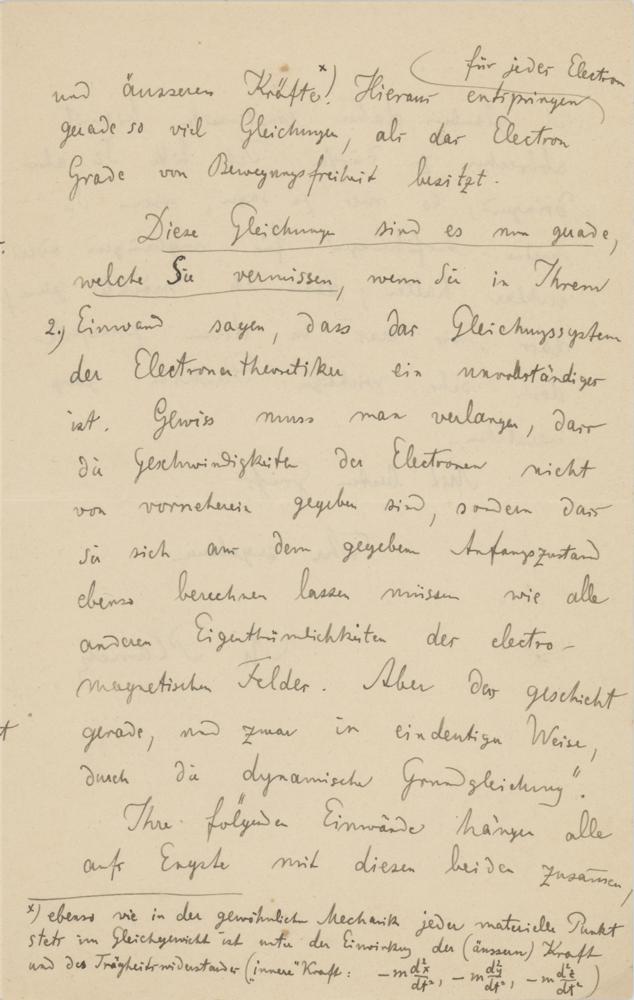 für jedes Electron
und äusseren Kräfte.ˣ) Hieraus entspringen
gerade so viel Gleichungen, als das Electron
Grade von Bewegungsfreiheit besitzt.
Diese Gleichungen sind es nun gerade,
welche Sie vermissen, wenn Sie in Ihrem
2.) Einwand sagen, dass das Gleichungssystem
der Electronentheoretiker ein unvollständiges
ist. Gewiss muss man verlangen, dass
die Geschwindigkeiten der Electronen nicht
von vorneherein gegeben sind, sondern dass
sie sich aus dem gegebenen Anfangszustand
ebenso berechnen lassen müssen wie alle
anderen Eigenthümlichkeiten des electro-
magnetischen Feldes. Aber das geschieht
gerade, und zwar in eindeutiger Weise,
durch die „dynamische Grundgleichung“.
Ihre folgenden Einwände hängen alle
aufs Engste mit diesen beiden zusammen,
x) ebenso wie in der gewöhnlichen Mechanik jeder materielle Punkt
stets im Gleichgewicht ist unter der Einwirkung der (äussern) Kraft
und des Trägheitswiderstandes („innere“ Kraft: −m d²x/dt², −m d²y/dt², −m d²z/dt²)